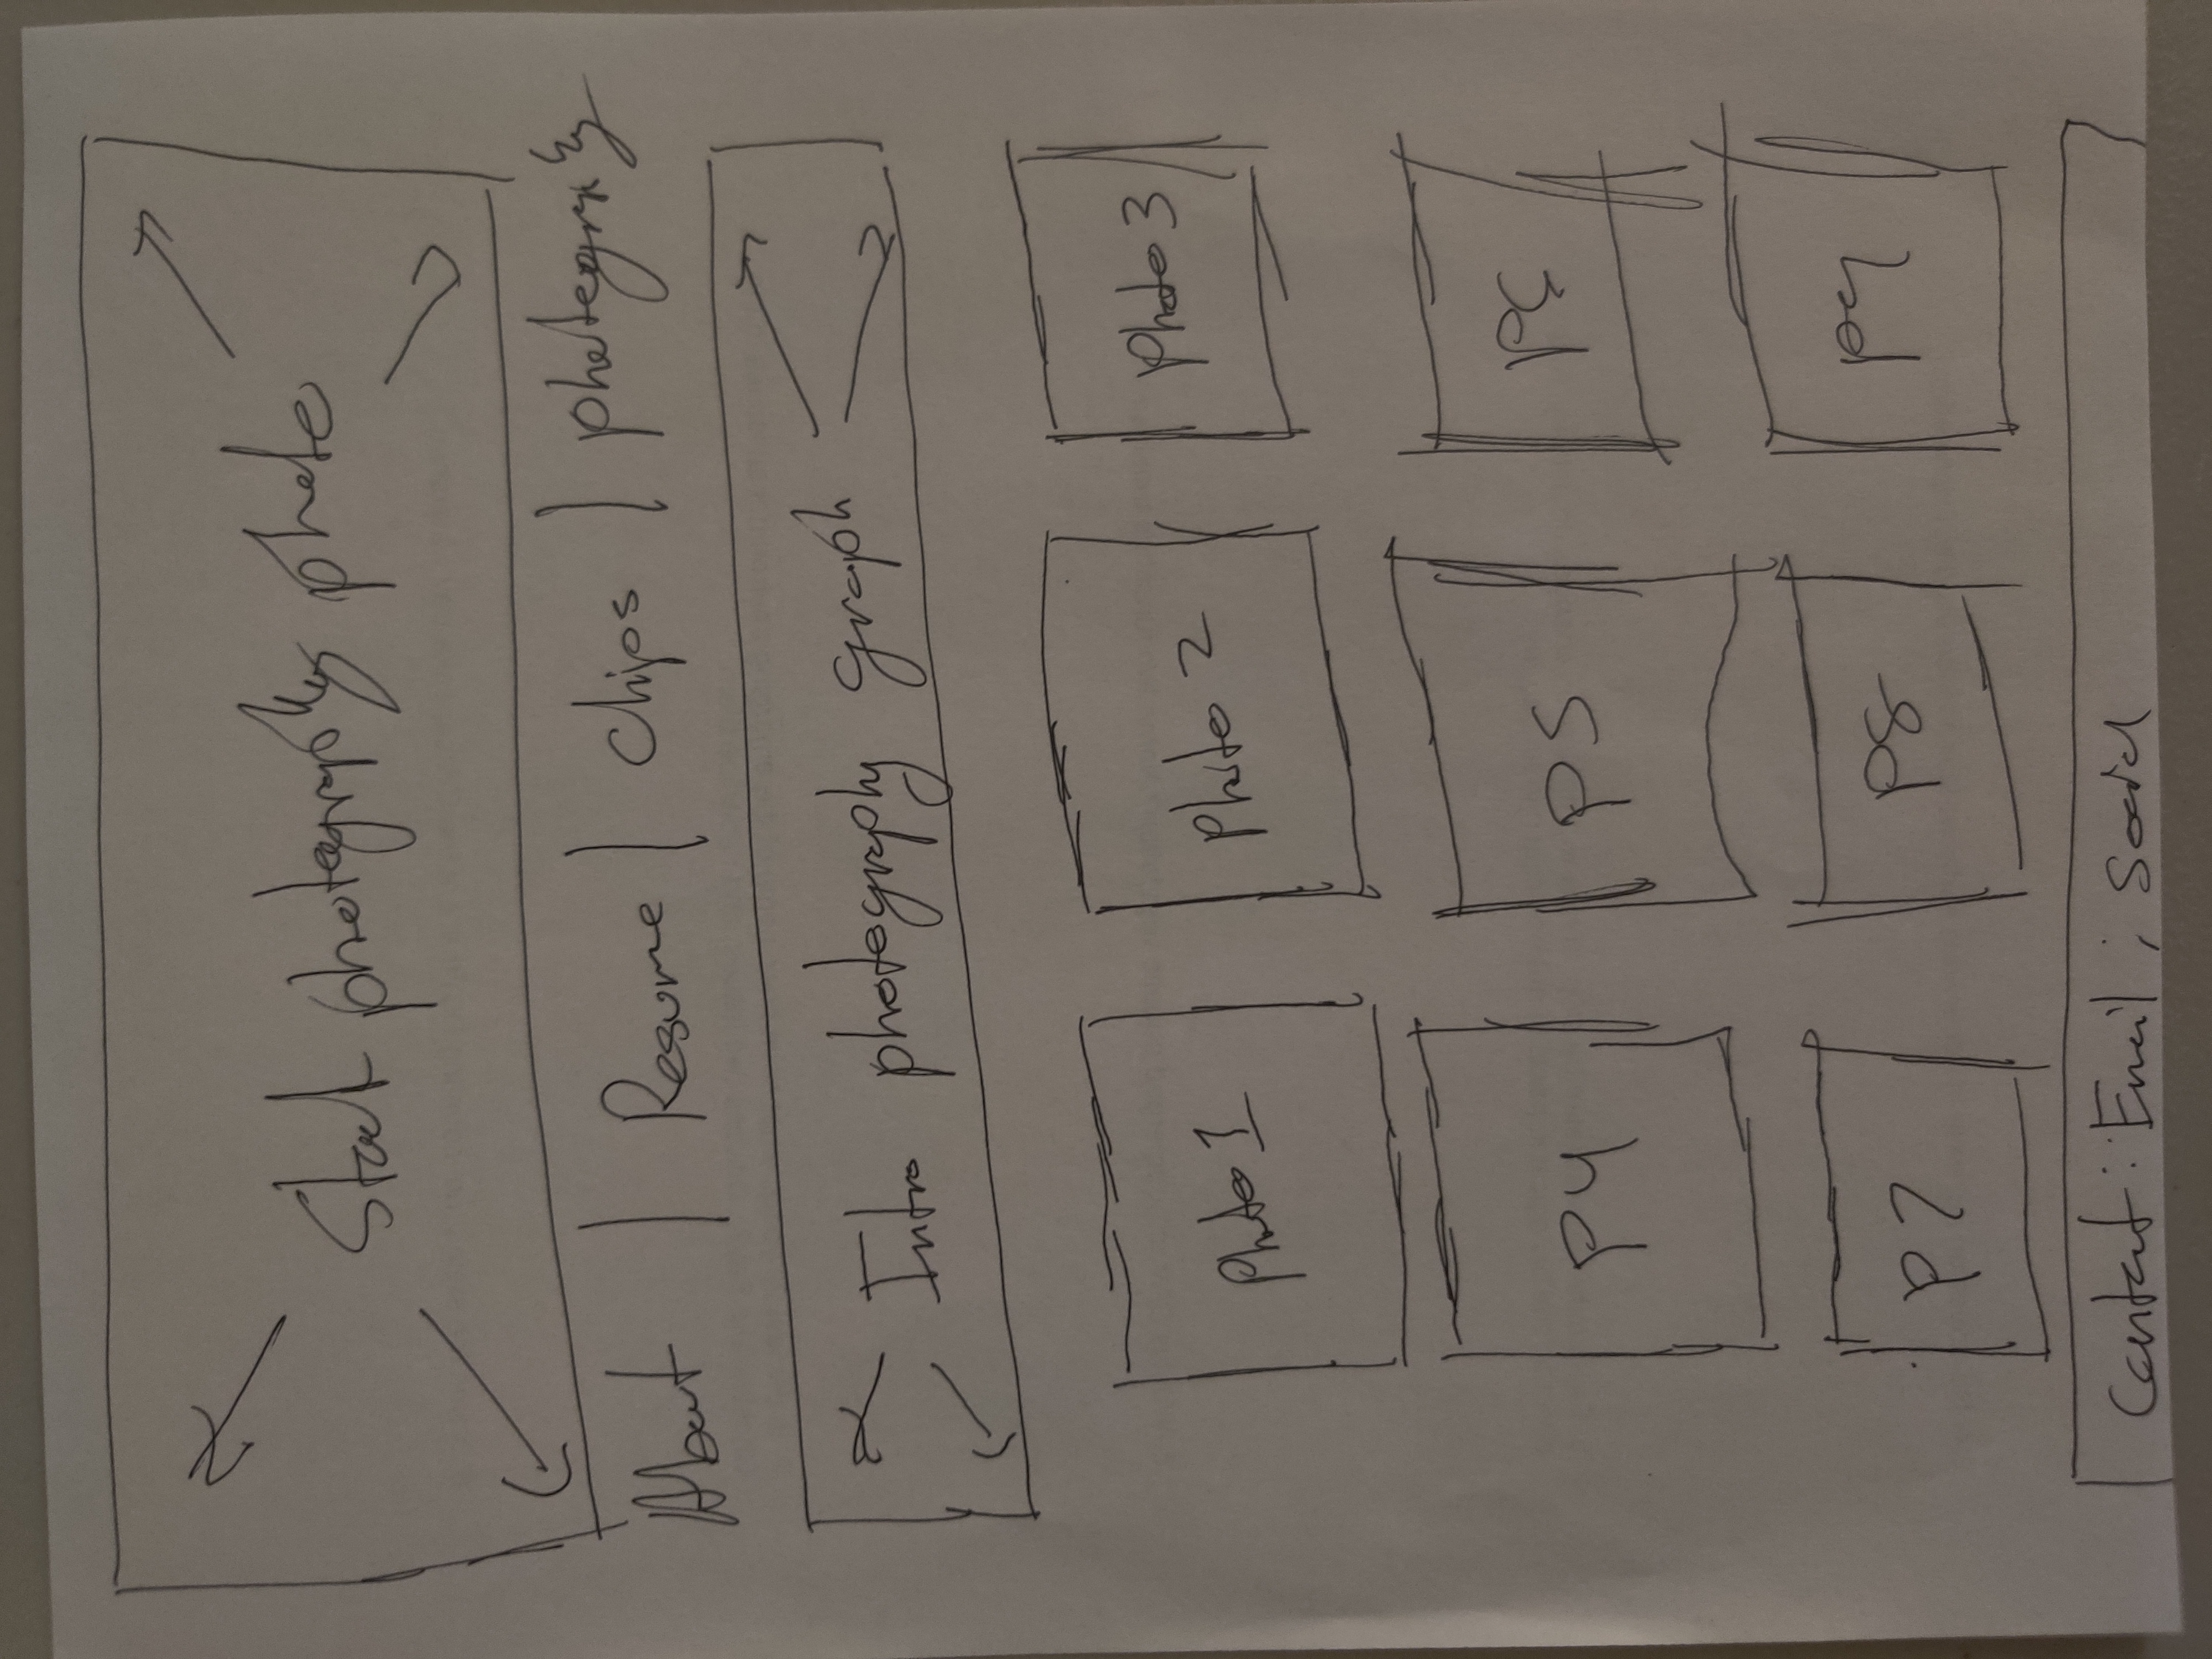 Start photography photo
About | Resume | Clips | photography
Intro photography graph
Photo 1 Photo 2 Photo 3
P4 P5 P6
P7 P8 P9
Contact: Email ; Social